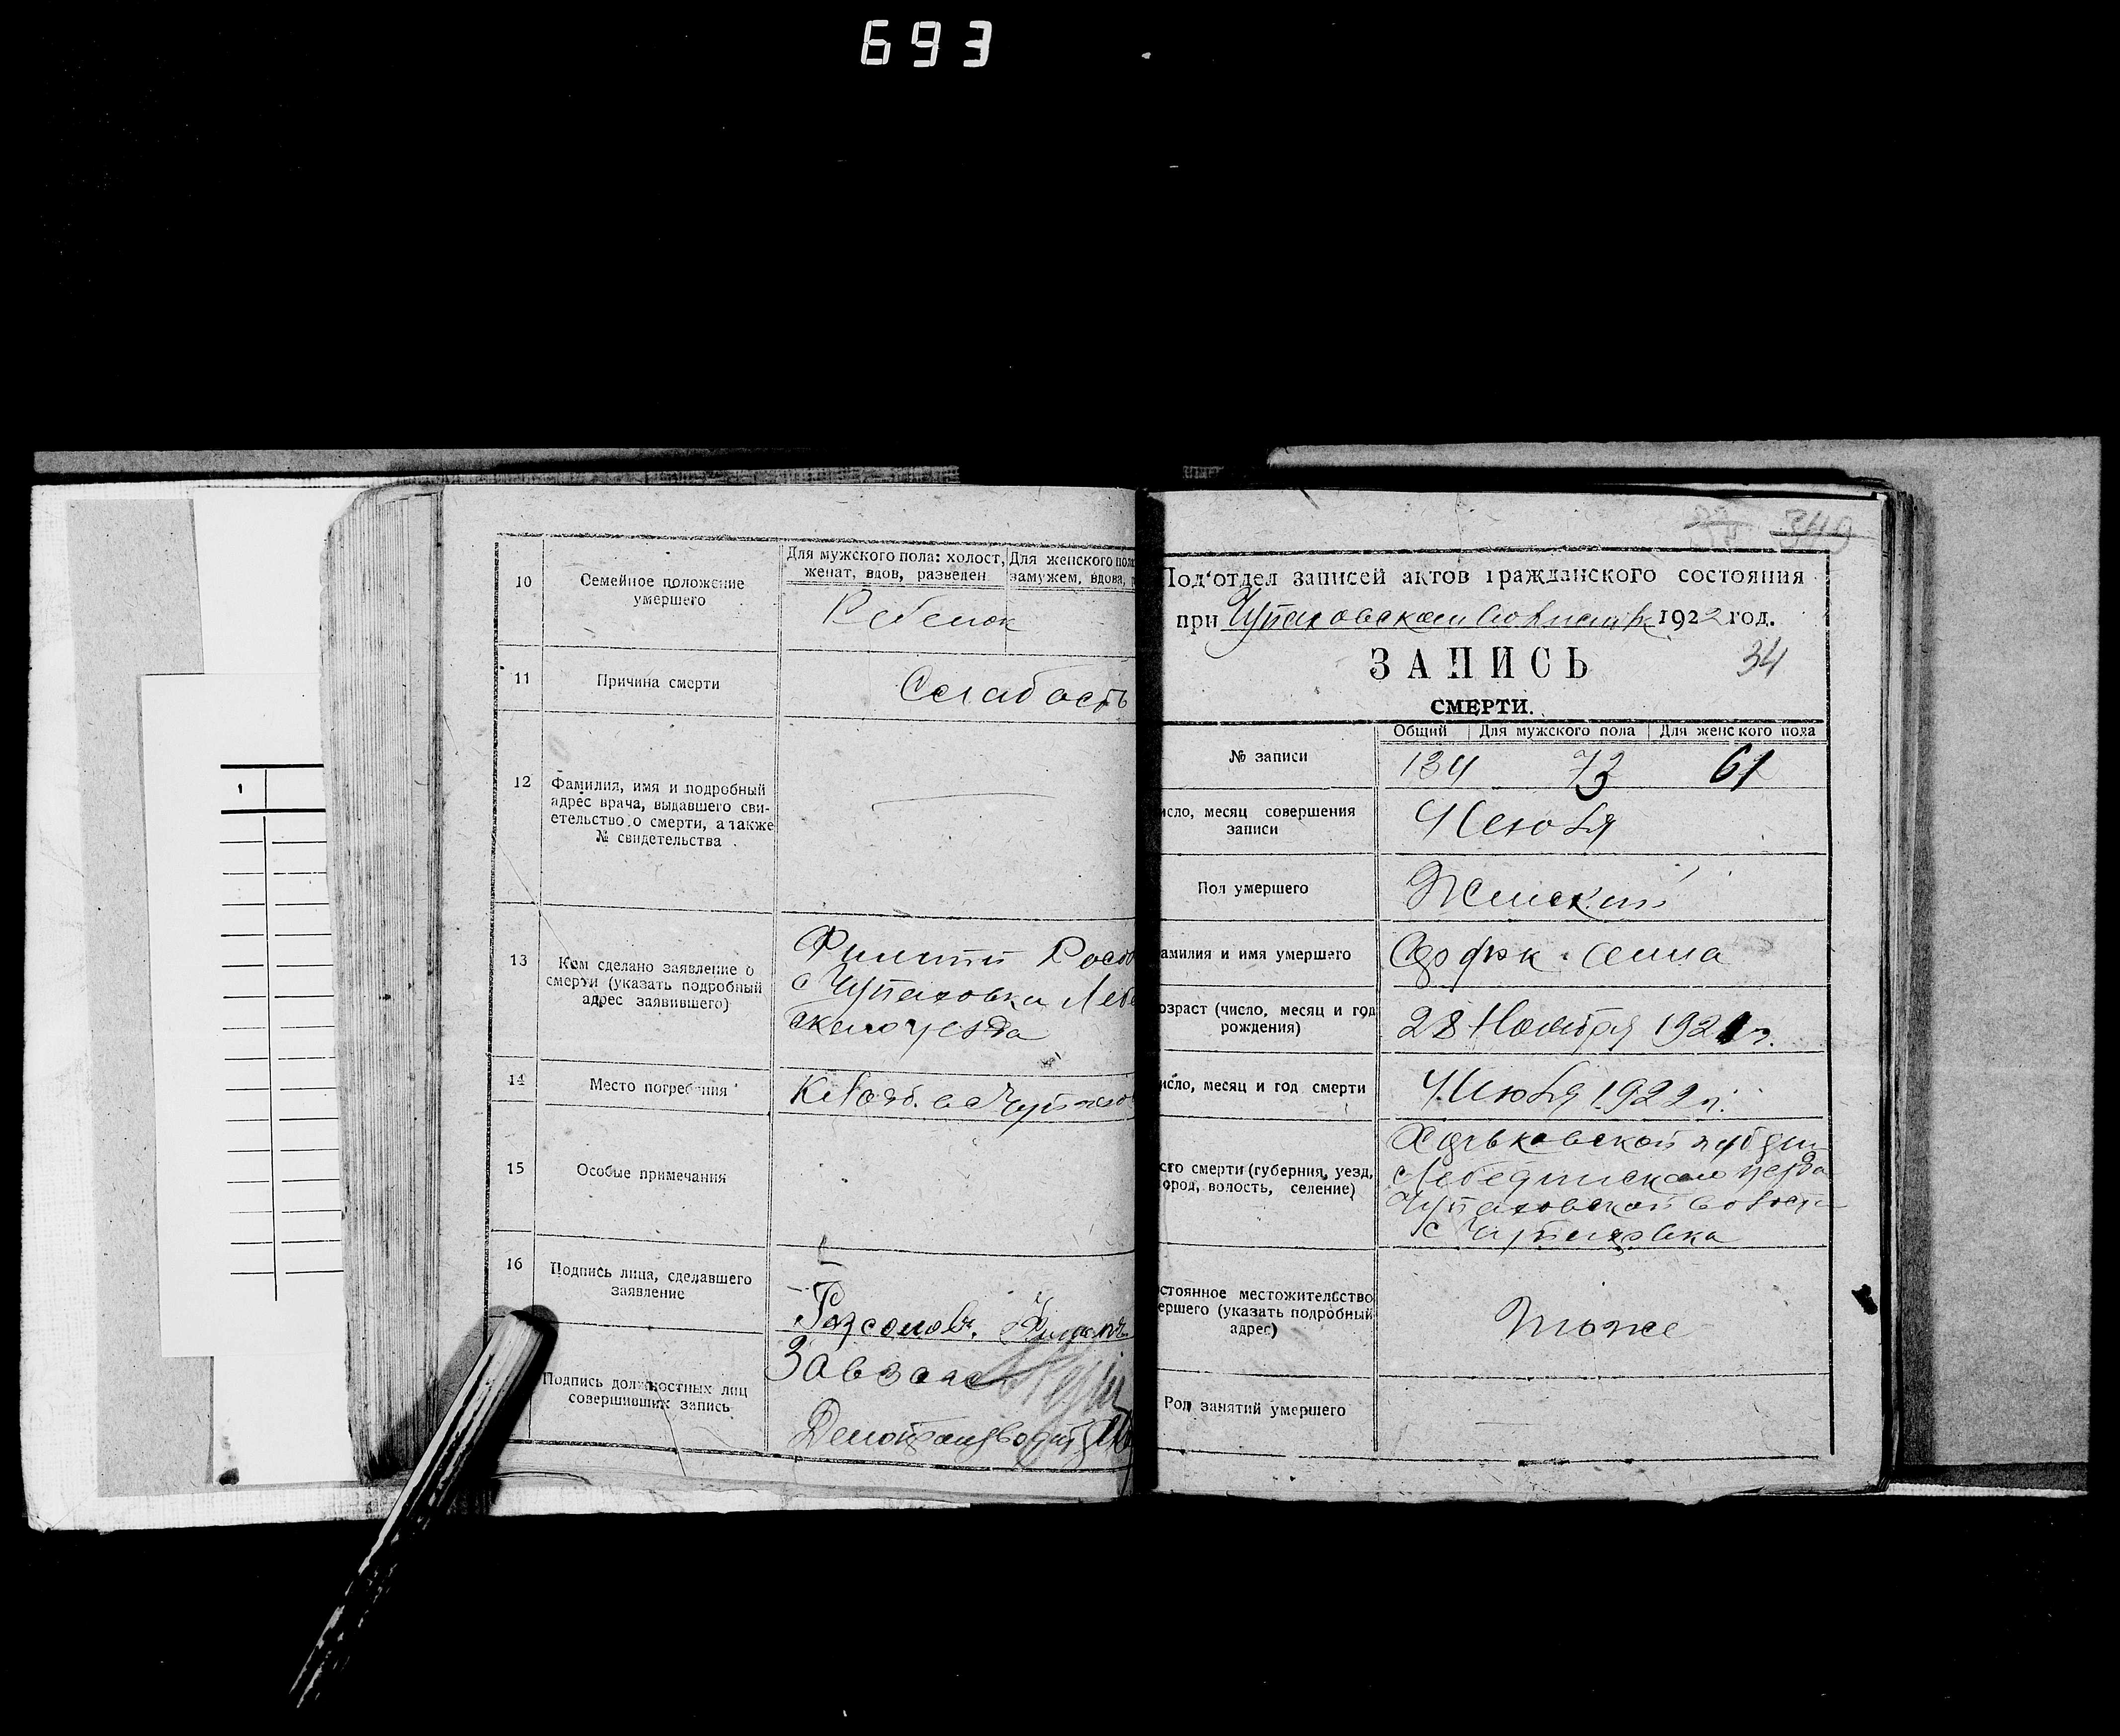 693
10
Семейное положение
умершего
Для мужского пола: холост,
женат, вдов, разведен
Для женского пол
замужем, вдова,
Ребенок
11
Причина смерти
Слабость
12
Фамилия, имя и подробный
адрес врача, выдавшего сви-
етельство о смерти, а также
№ свидетельства
13
Кем сделано заявление о
смерти (указать подробный
адрес заявившего)
Филипп
с Чупаховка Лебе
ского уезда
14
Место погребения
Кладб. в с Чупахо
15
Особые примечания
16
Подпись лица, сделавшего
заявление
Подпись должностных лиц
совершивших запись
Завзагс
340
Под'отдел записей актов гражданского состояния
при Чупаховском 1922 год.
ЗАПИСЬ
34
СМЕРТИ.
№ записи
Общий
Для мужского пола
Для женского пола
134
73
61
исло, месяц совершения
записи
4 Июля
Пол умершего
Женский
амилия и имя умершего
озраст (число, месяц и год
рождения)
28 Ноября 1921 г.
исло, месяц и год смерти
4 Июля 1922 г.
сто смерти (губерния, уезд,
ород, волость, селение)
Харьковской губерн
Лебединского уезда
Чупаховской волост
с Чупаховка
стоянное местожительство
ершего (указать подробный
адрес)
тоже
Род занятий умершего
1